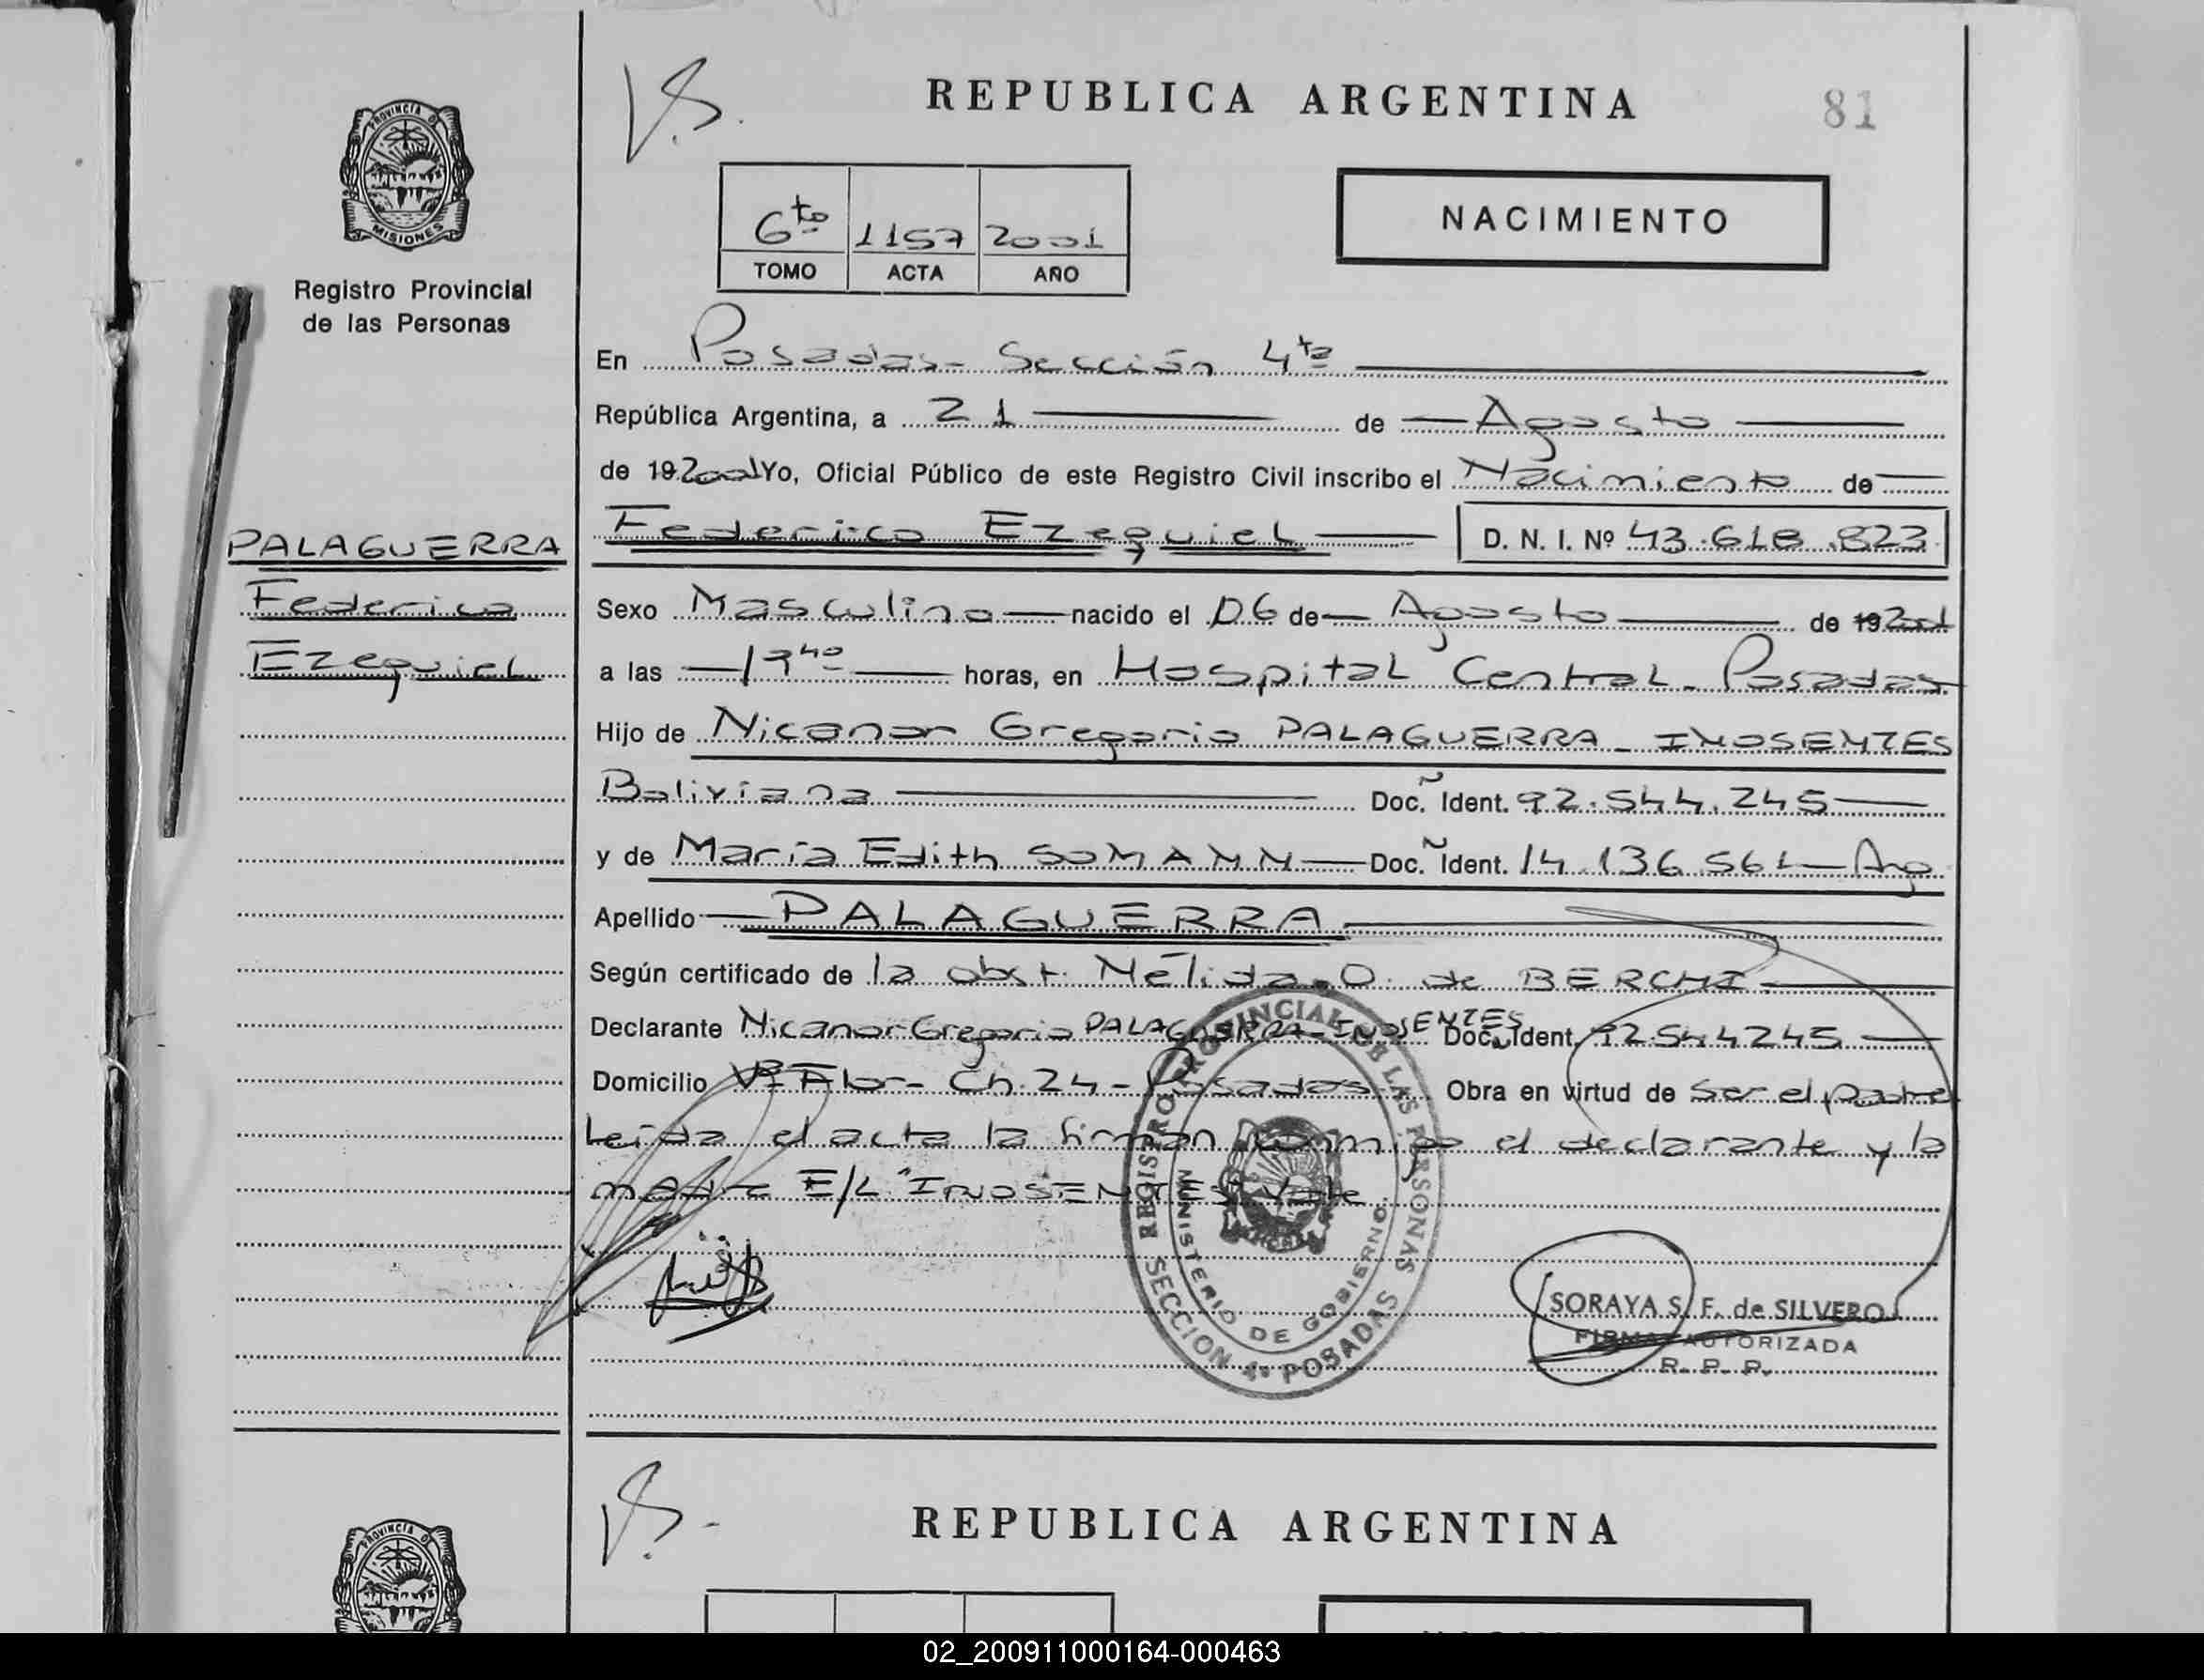 REPUBLICA ARGENTINA
81
PROVINCIA D
MISIONES
Registro Provincial
de las Personas
6to 1157 2001
TOMO ACTA AÑO
NACIMIENTO
En Posadas - Sección 4ta
República Argentina, a 21 de Agosto
de 19 2001 Yo, Oficial Público de este Registro Civil inscribo el Nacimiento de
PALAGUERRA
Federico Ezequiel D. N. I. Nº 43.618.823
Federico
Sexo Masculino nacido el 06 de Agosto de 19 2001
Ezequiel
a las 19 40 horas, en Hospital Central - Posadas
Hijo de Nicanor Gregorio PALAGUERRA - INOSENTES
Boliviana Doc. Ident. 92.544.245
y de María Edith SOMANN Doc. Ident. 14.136.561 Arg
Apellido PALAGUERRA
Según certificado de la obst. Nélida O. de BERCHI
Declarante Nicanor Gregorio PALAGUERRA - INOSENTES Doc. Ident. 92544245
Domicilio Vª Flor - Ch. 24 - Posadas Obra en virtud de ser el padre
Leida el acta la firman conmigo el declarante y la
madre E/L "INOSENTES" Vale
REGISTRO PROVINCIAL DE LAS PERSONAS
MINISTERIO DE GOBIERNO
SECCION 4ª POSADAS
SORAYA S. F. de SILVERO
FIRMA AUTORIZADA
R. P. P.
REPUBLICA ARGENTINA
PROVINCIA D
02_200911000164-000463